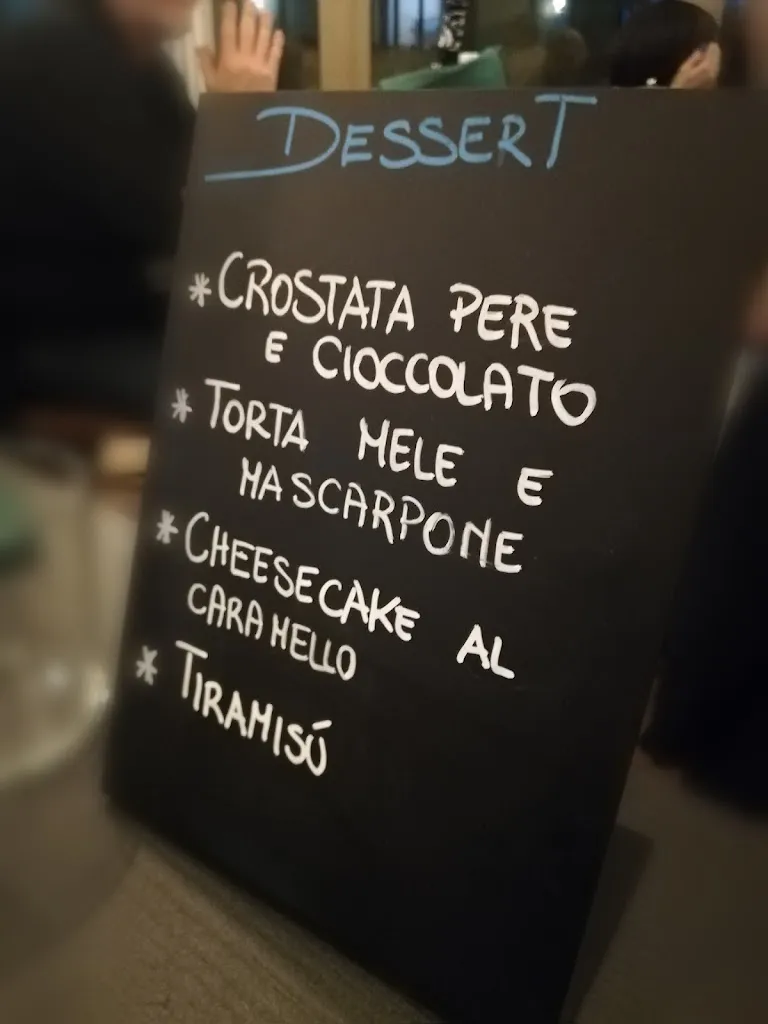 DESSERT
* CROSTATA PERE
E CIOCCOLATO
* TORTA MELE E
MASCARPONE
* CHEESECAKE AL
CARAMELLO
* TIRAMISÚ